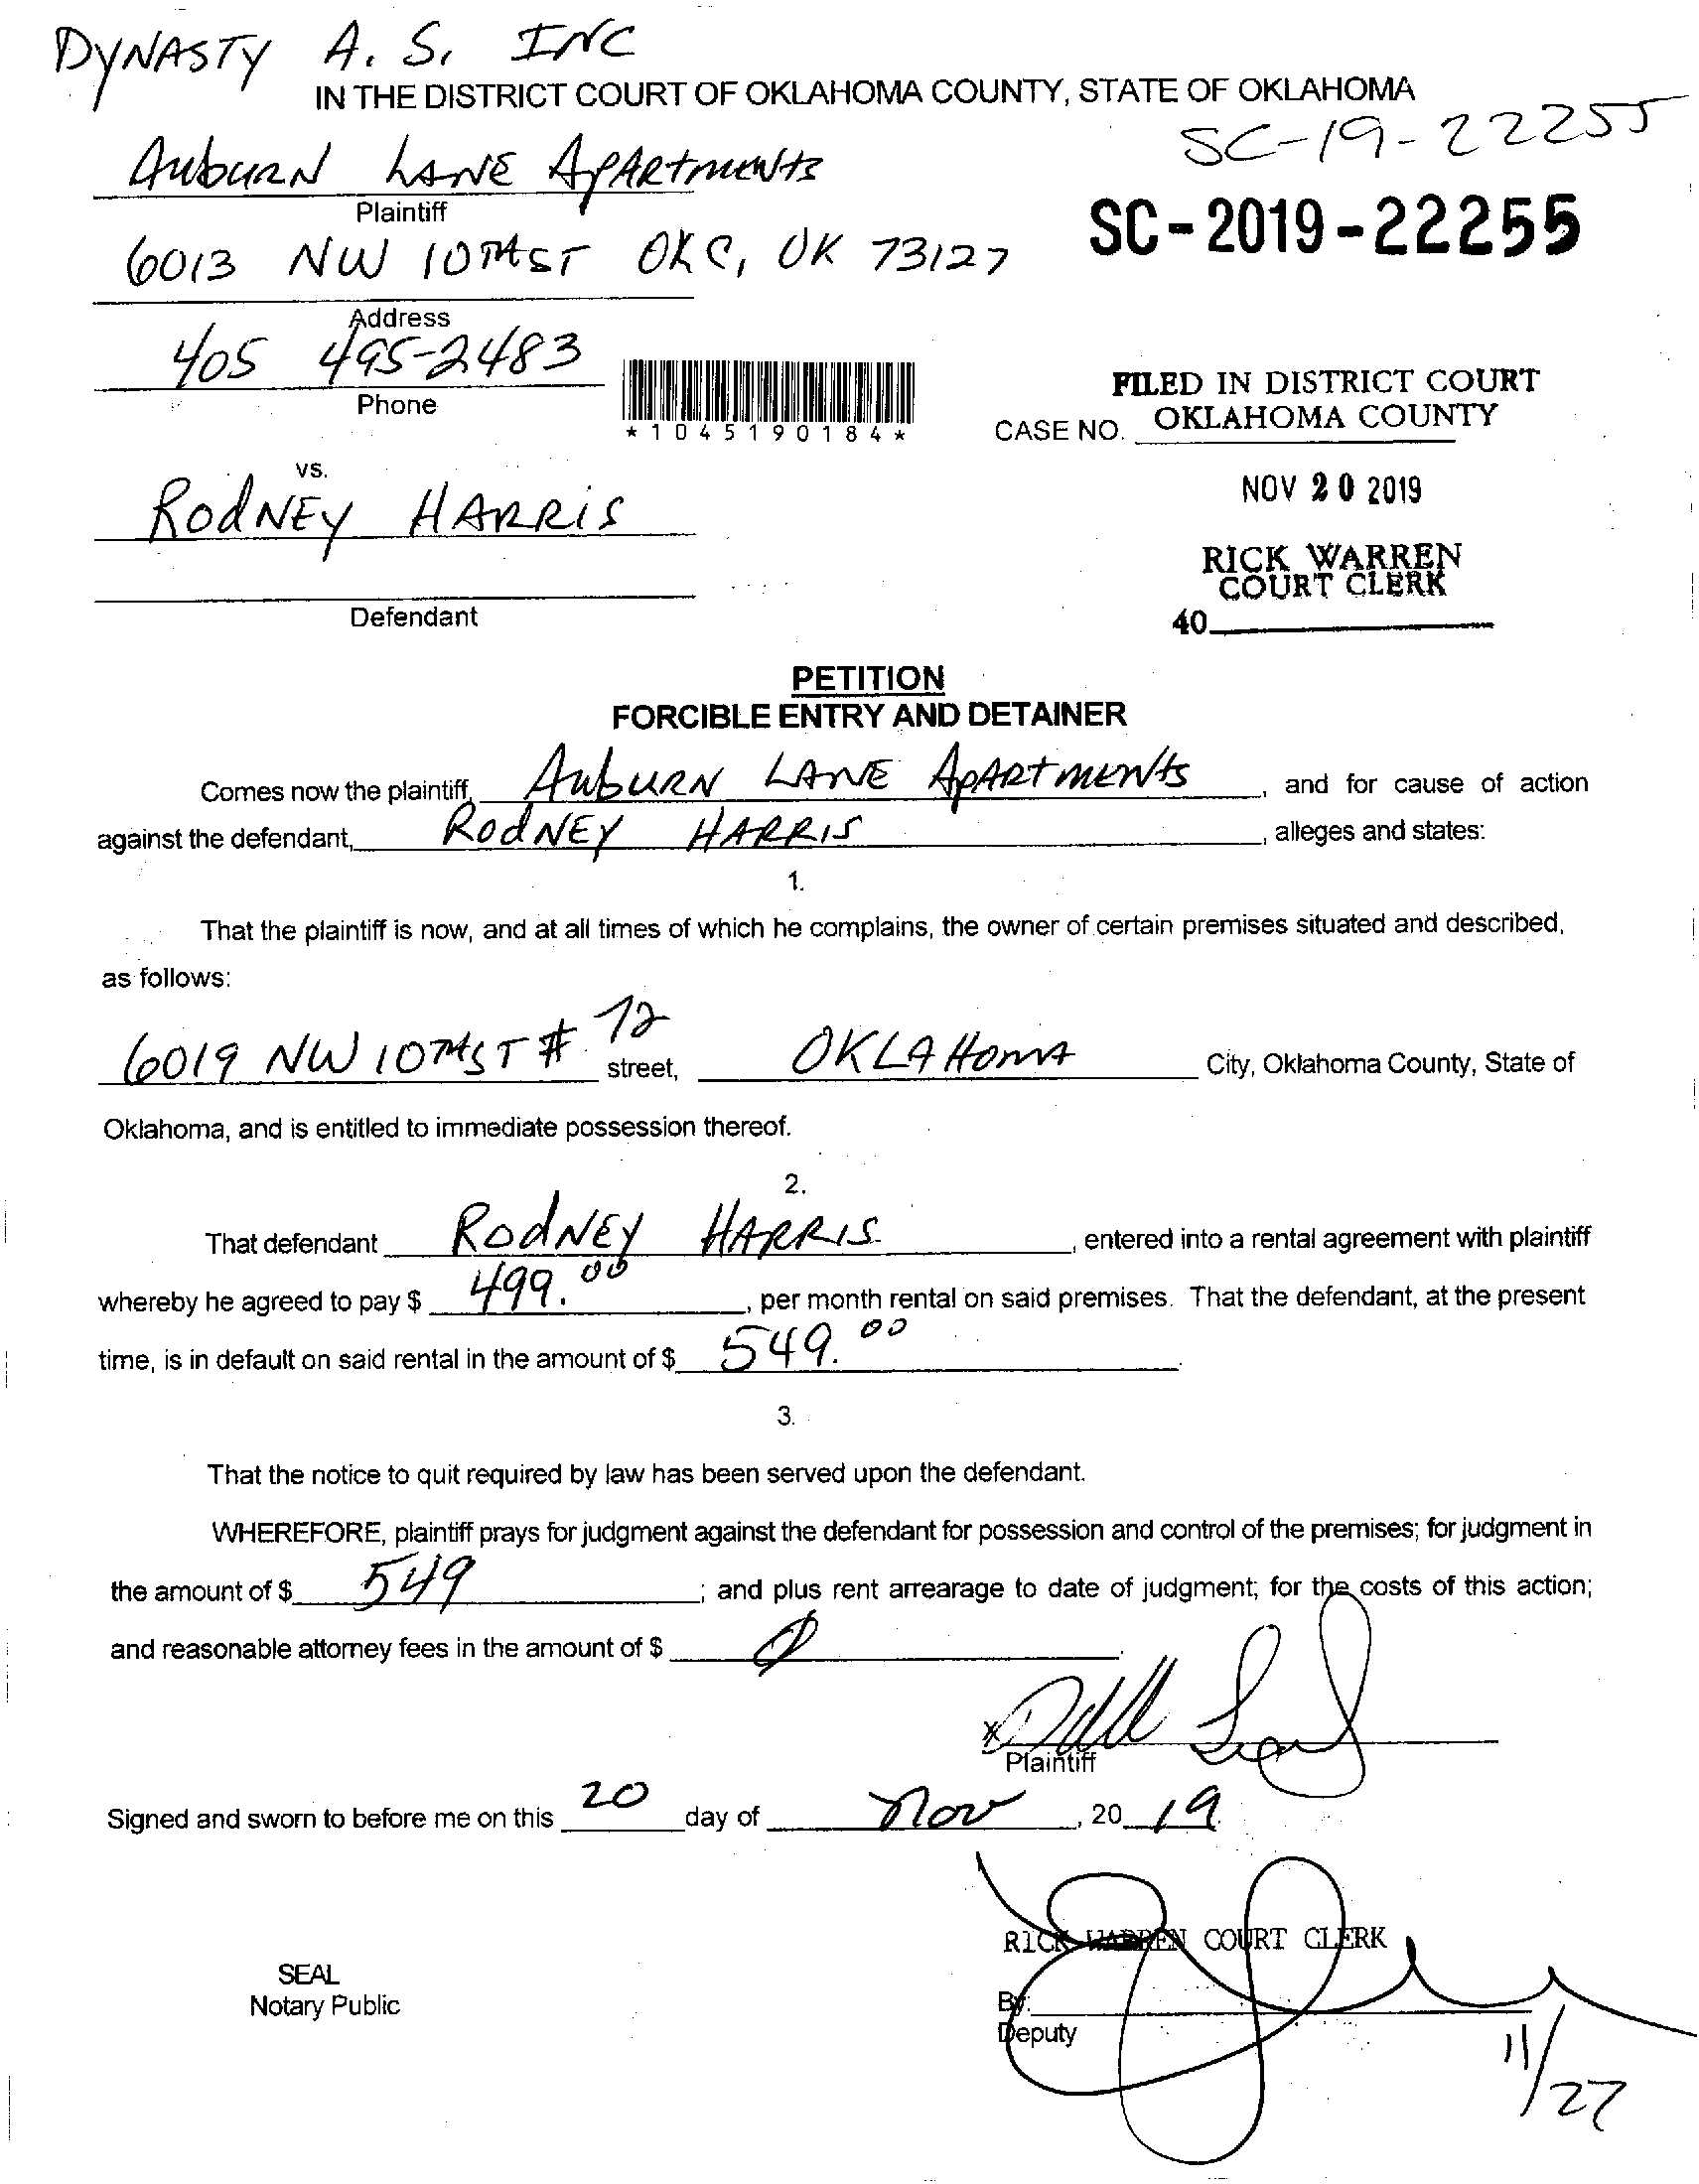 DYNASTY A. S. INC
IN THE DISTRICT COURT OF OKLAHOMA COUNTY, STATE OF OKLAHOMA
SC-19-22255
AuburN LANE ApARtmeNts
Plaintiff
SC-2019-22255
6013 NW 10TH ST OKC, OK 73127
Address
405 495-2483
Phone
*1045190184*
FILED IN DISTRICT COURT
CASE NO. OKLAHOMA COUNTY
vs.
NOV 20 2019
RodNEY HARRIS
RICK WARREN
COURT CLERK
Defendant
40
PETITION
FORCIBLE ENTRY AND DETAINER
Comes now the plaintiff, AubuRN LANE ApARtmeNts, and for cause of action
against the defendant, RodNEY HARRIS, alleges and states:
1.
That the plaintiff is now, and at all times of which he complains, the owner of certain premises situated and described,
as follows:
6019 NW 10TH ST # 72 street, OKLAHomA City, Oklahoma County, State of
Oklahoma, and is entitled to immediate possession thereof.
2.
That defendant RodNEY HARRIS, entered into a rental agreement with plaintiff
whereby he agreed to pay $ 499.00, per month rental on said premises. That the defendant, at the present
time, is in default on said rental in the amount of $ 549.00
3.
That the notice to quit required by law has been served upon the defendant.
WHEREFORE, plaintiff prays for judgment against the defendant for possession and control of the premises; for judgment in
the amount of $ 549; and plus rent arrearage to date of judgment; for the costs of this action;
and reasonable attorney fees in the amount of $ Ø
x
Plaintiff
Signed and sworn to before me on this 20 day of Nov, 20 19
RICK WARREN COURT CLERK
SEAL
Notary Public
By:
Deputy
11/27